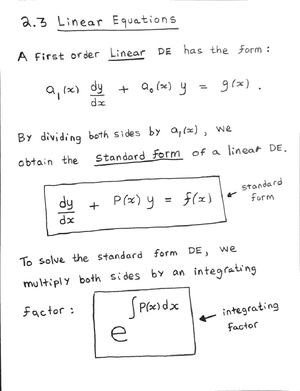 2.3 Linear Equations
A first order Linear DE has the form:
a₁(x) dy/dx + a₀(x) y = g(x).
By dividing both sides by a₁(x), we
obtain the standard form of a linear DE.
dy/dx + P(x) y = f(x) ← standard form
To solve the standard form DE, we
multiply both sides by an integrating
factor: e^∫P(x)dx ← integrating factor